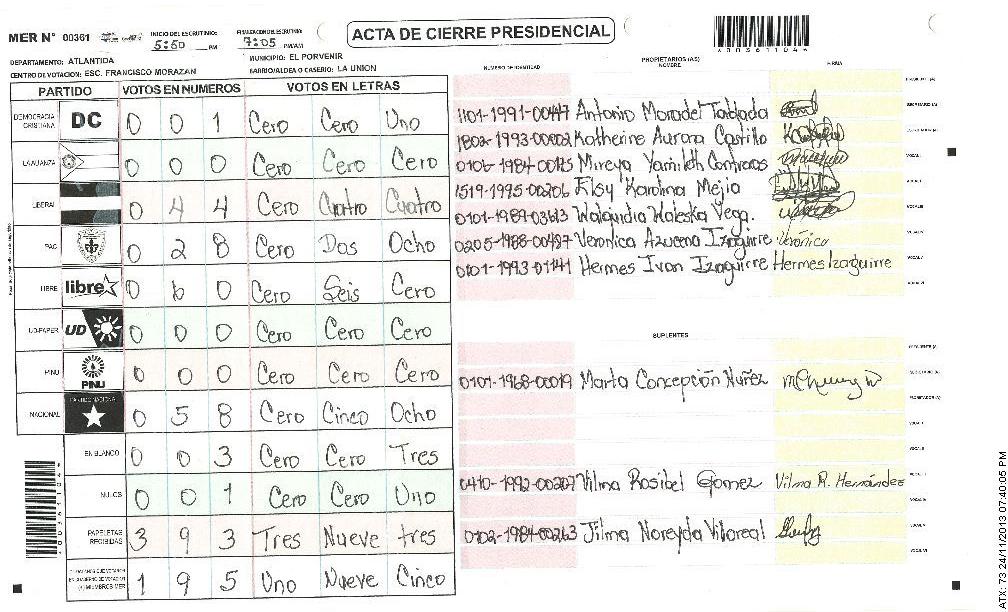 MER N° 00361
INICIO DEL ESCRUTINIO:
5:50 PM
FINALIZACION DEL ESCRUTINIO:
7:05 PM/AM
ACTA DE CIERRE PRESIDENCIAL
DEPARTAMENTO: ATLANTIDA
MUNICIPIO: EL PORVENIR
CENTRO DE VOTACION: ESC. FRANCISCO MORAZAN
BARRIO/ALDEA O CASERIO: LA UNION
PARTIDO VOTOS EN NUMEROS VOTOS EN LETRAS
DEMOCRACIA CRISTIANA DC 0 0 1 Cero Cero Uno
LA ALIANZA 0 0 0 Cero Cero Cero
LIBERAL 0 4 4 Cero Cuatro Cuatro
PAC 0 2 8 Cero Dos Ocho
LIBRE libre 0 6 0 Cero Seis Cero
UD-FAPER UD 0 0 0 Cero Cero Cero
PINU PINU 0 0 0 Cero Cero Cero
NACIONAL PARTIDO NACIONAL 0 5 8 Cero Cinco Ocho
EN BLANCO 0 0 3 Cero Cero Tres
NULOS 0 0 1 Cero Cero Uno
PAPELETAS RECIBIDAS 3 9 3 Tres Nueve tres
1 9 5 Uno Nueve Cinco
NUMERO DE IDENTIDAD
PROPIETARIOS (AS)
NOMBRE
FIRMA
1101-1991-00447 Antonio Moradel Tablada
1802-1993-00002 Katherine Aurora Castillo
0106-1984-00125 Mireya Yamileth Contreras
1519-1995-00206 Elsy Karolina Mejia
0101-1989-03613 Walquidia Waleska Vega.
0205-1988-00497 Veronica Azucena Izaguirre Verónica
0101-1993-01141 Hermes Ivan Izaguirre Hermes Izaguirre
SUPLENTES
0101-1968-00019 Marta Concepción Nuñez
0410-1992-00207 Vilma Rosibel Gomez Vilma R. Hernández
0102-1984-00263 Jilma Noreyda Villareal
ATX: 73 24/11/2013 07:40:05 PM